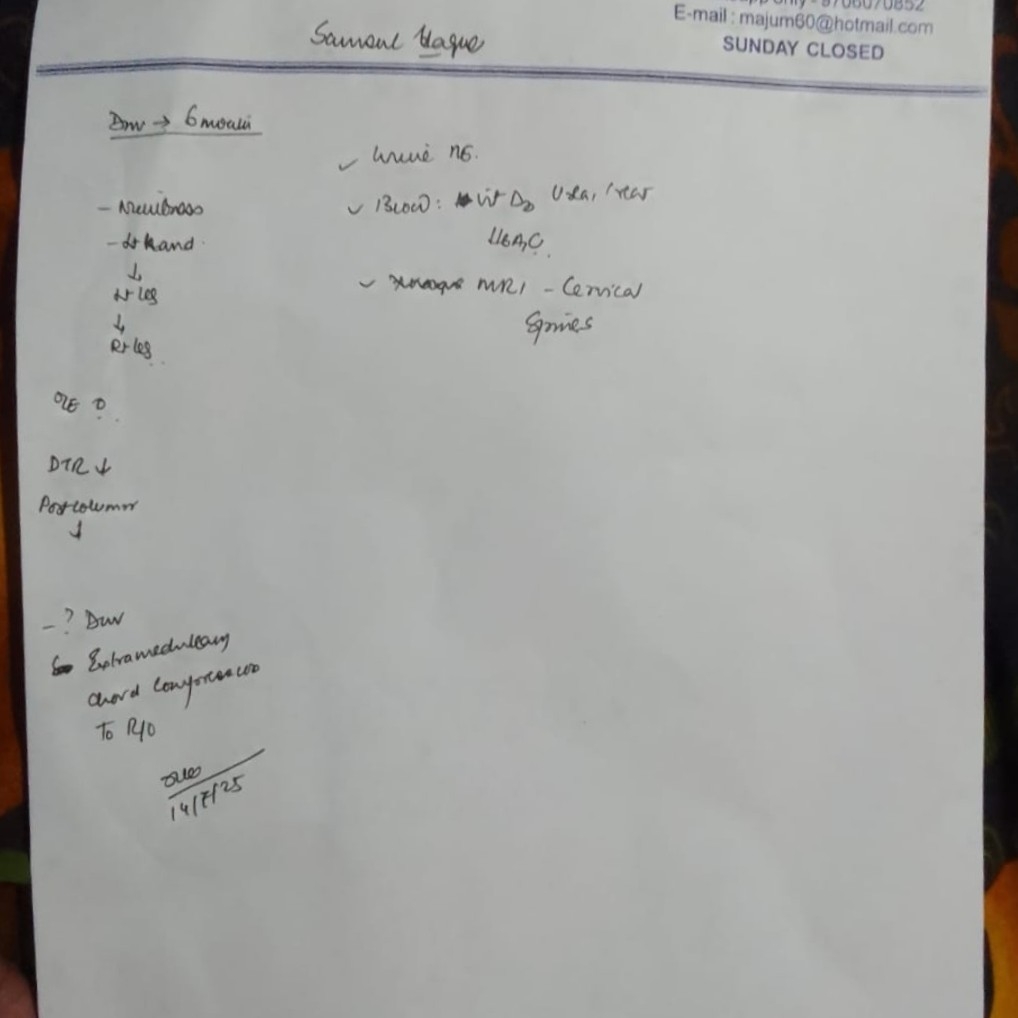 E-mail : majum60@hotmail.com
SUNDAY CLOSED
Samsul Haque
→ 6 month
- Numbness
- Lt hand
↓
Lt leg
↓
Rt leg
O/E
DTR ↓
Post column
↓
- ?
Extramedullary
chord compression
To R/O
14/7/25
✓ Urine RE.
✓ Blood: Vit D3 Urea, / creat
HBA1C
✓ MRI - Cervical
Spines